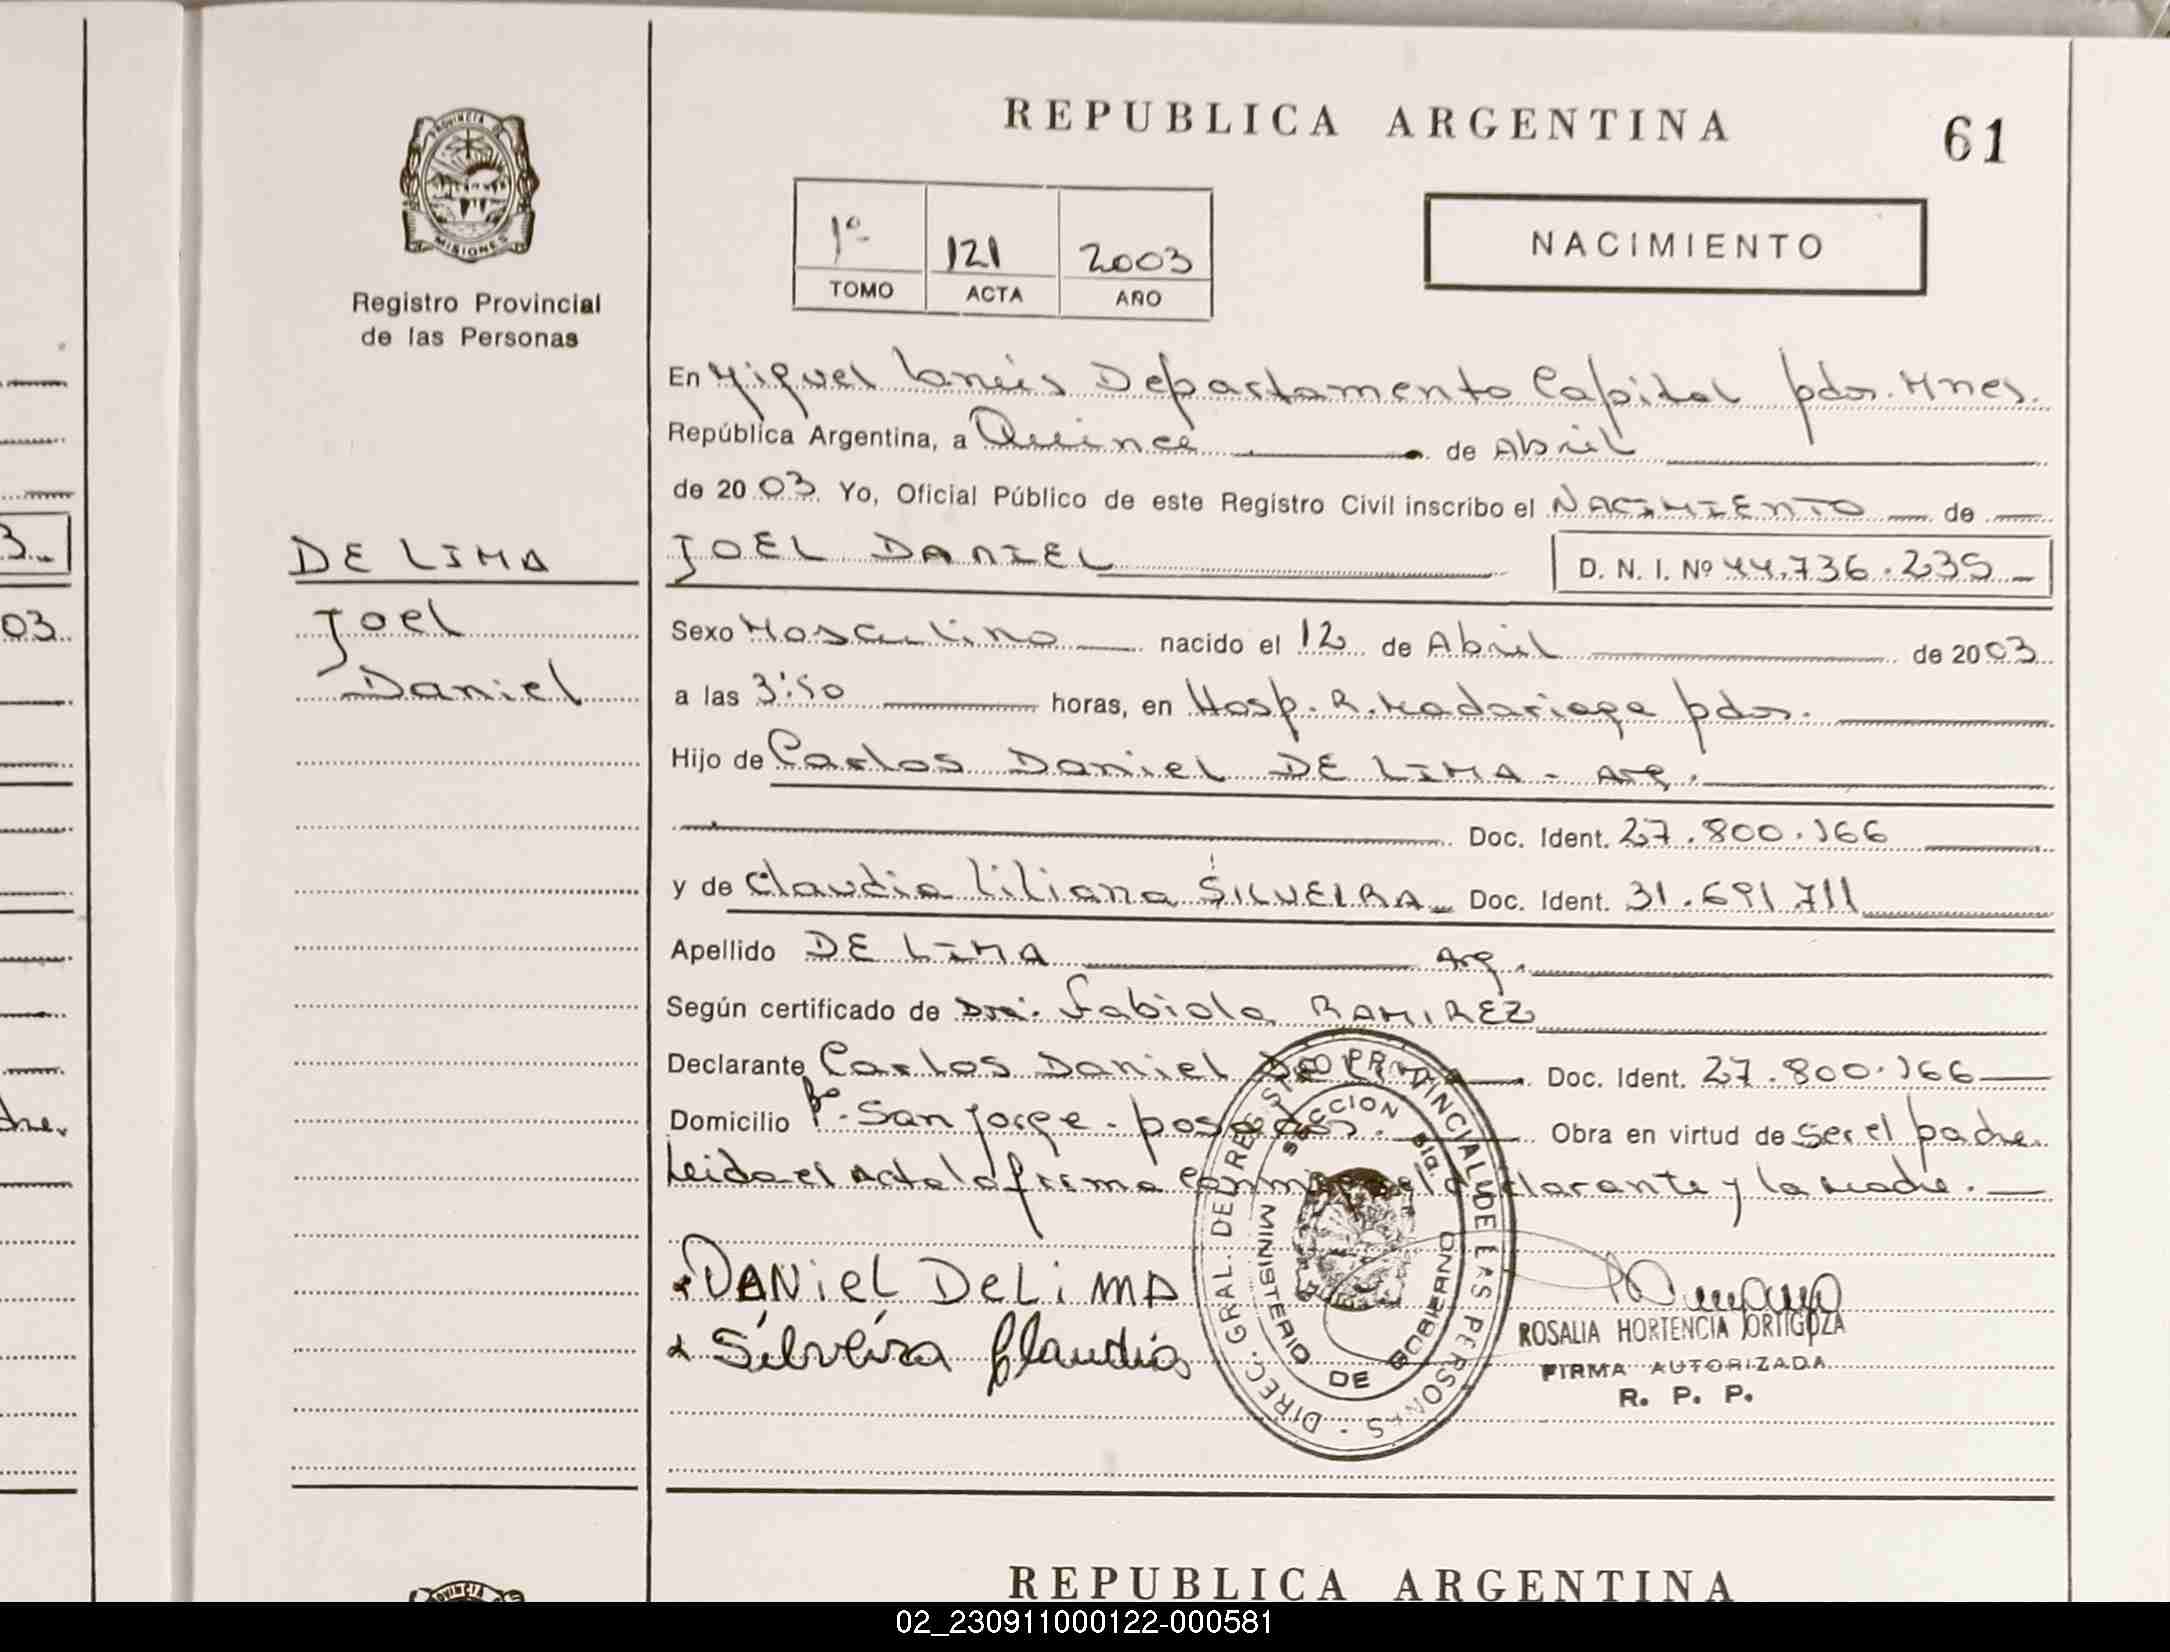 REPUBLICA ARGENTINA
61
PROVINCIA DE
MISIONES
Registro Provincial
de las Personas
1º 121 2003
TOMO ACTA AÑO
NACIMIENTO
En Miguel Lanús Departamento Capital pdas. Mnes.
República Argentina, a Quince de Abril
de 2003. Yo, Oficial Público de este Registro Civil inscribo el NACIMIENTO de
DE LIMA
JOEL DANIEL
D. N. I. Nº 44.736.235
Joel
Daniel
Sexo Masculino nacido el 12 de Abril de 2003
a las 3:50 horas, en Hosp. R. Madariaga pdas.
Hijo de Carlos Daniel DE LIMA - Arg.
Doc. Ident. 27.800.166
y de Claudia Liliana SILVEIRA Doc. Ident. 31.691.711
Apellido DE LIMA Arg.
Según certificado de Dra. Fabiola RAMIREZ
Declarante Carlos Daniel DE LIMA Doc. Ident. 27.800.166
Domicilio Bº. San Jorge - posadas. Obra en virtud de ser el padre
Leida el Acta la firma conmigo el declarante y la madre.
DANiEL DELiMA
Silveira Claudia
DIREC. GRAL. DEL REGISTRO PROVINCIAL DE LAS PERSONAS
MINISTERIO DE GOBIERNO
ROSALIA HORTENCIA ORTIGOZA
FIRMA AUTORIZADA
R. P. P.
REPUBLICA ARGENTINA
02_230911000122-000581